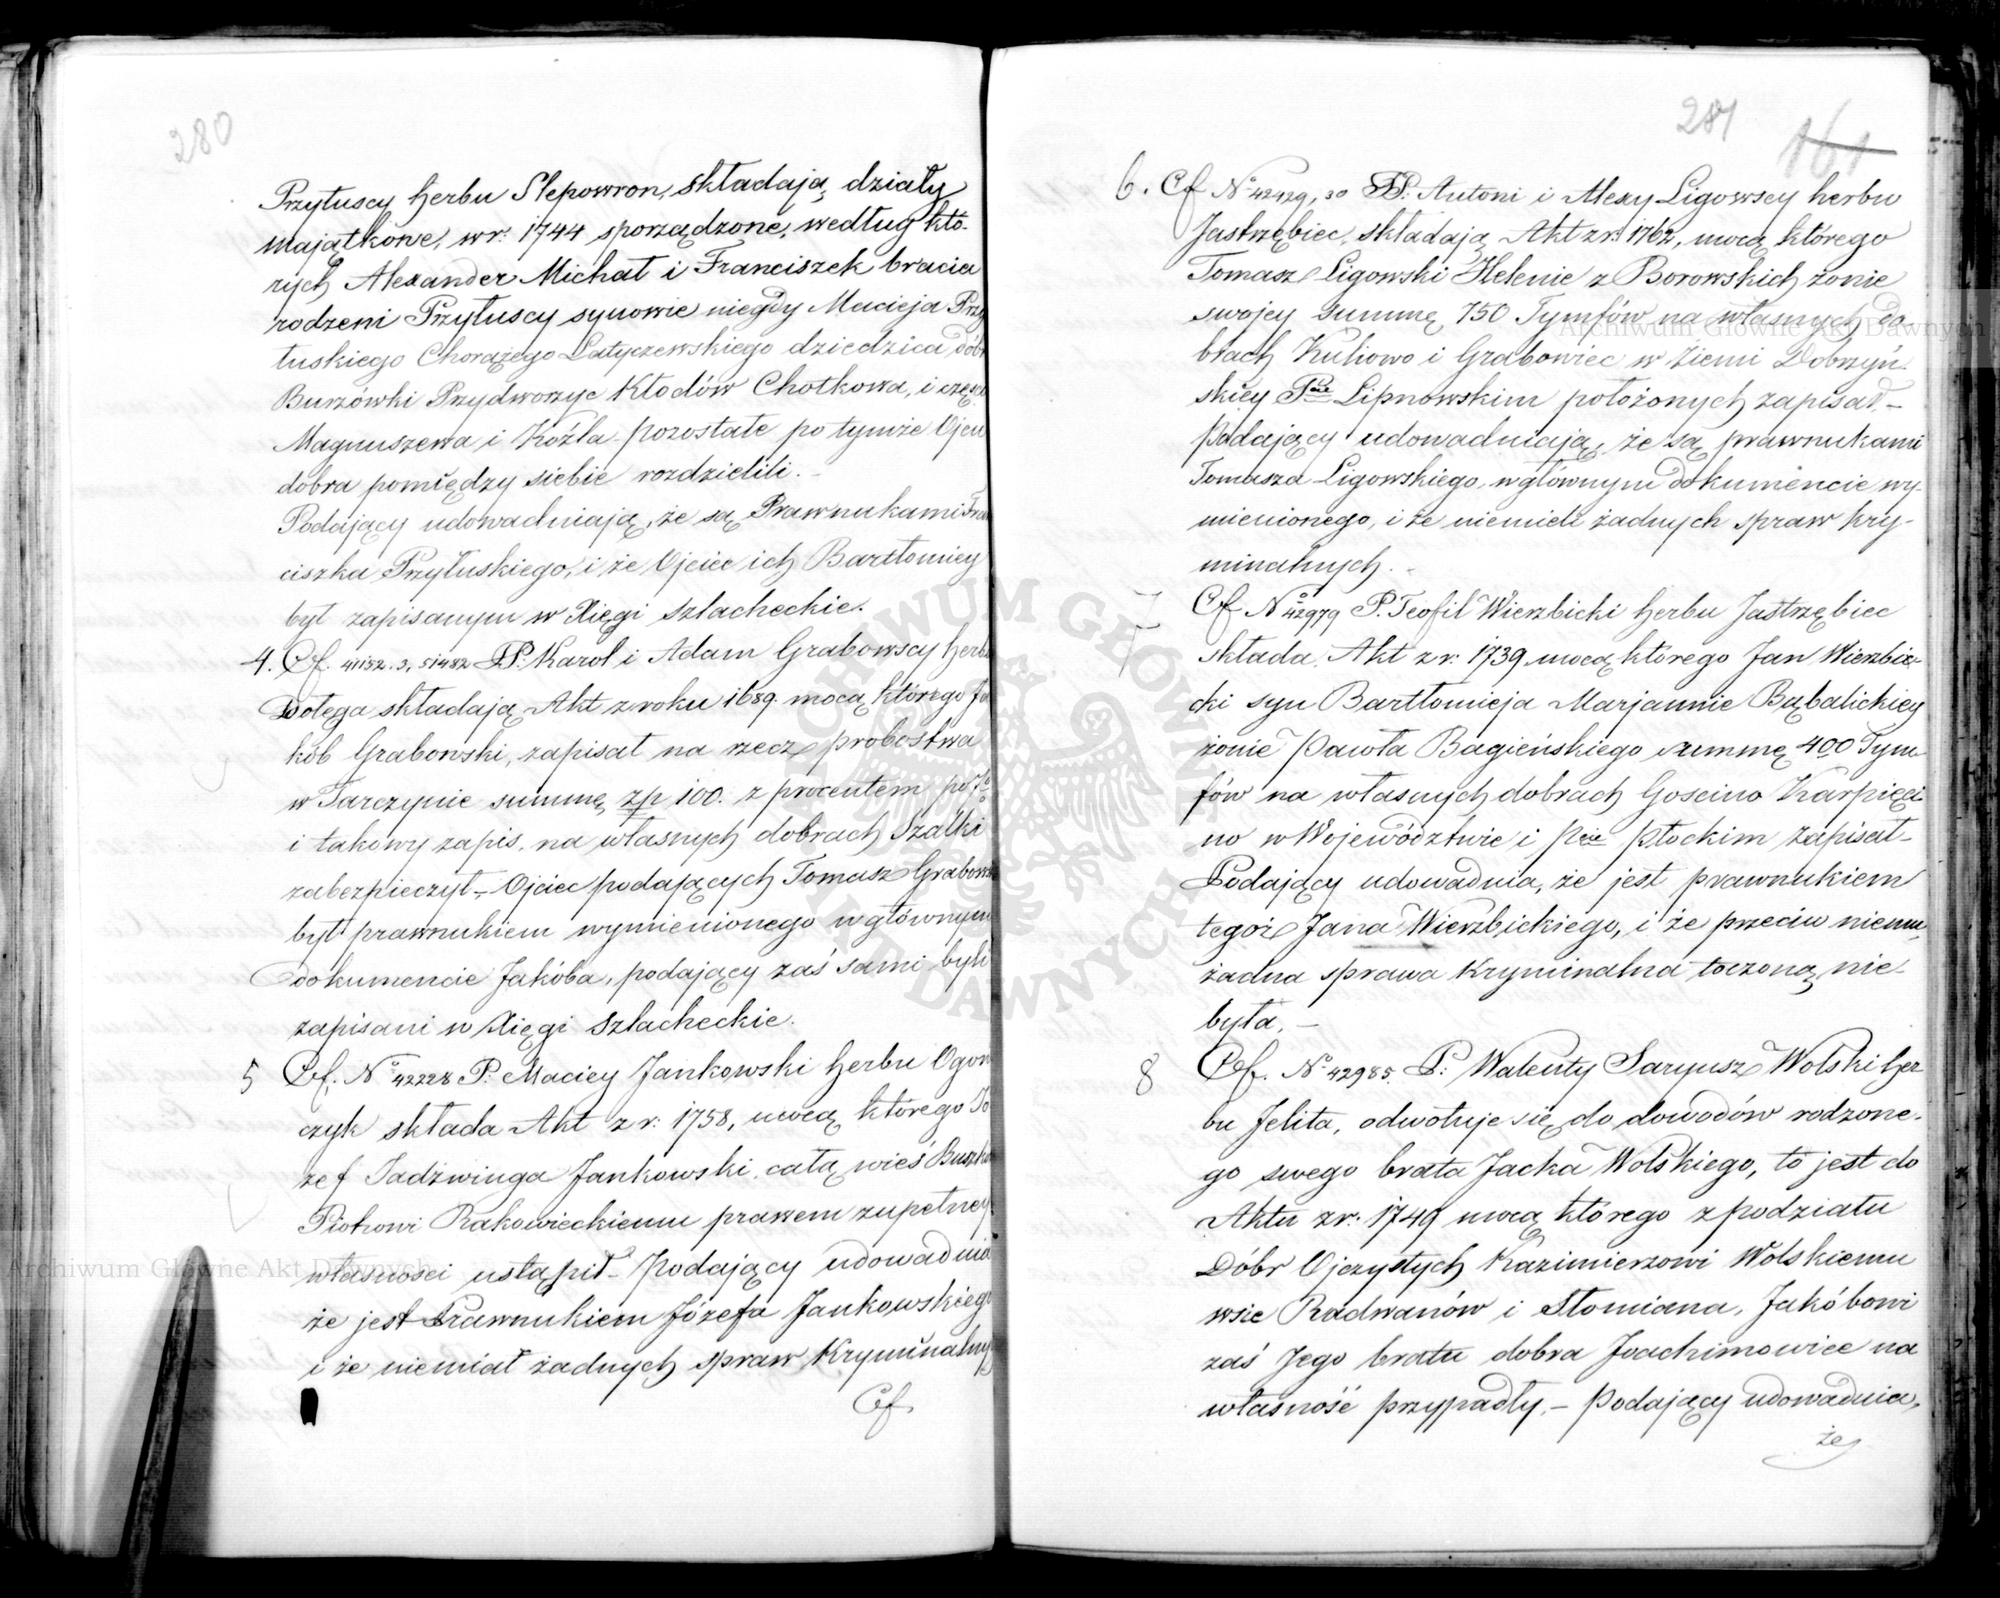 280
Przyłuscy herbu Slepowron, składają działy
majątkowe, w r: 1744 sporządzone, według któ-
rych Alexander Michał i Franciszek bracia
rodzeni Przyłuscy synowie niegdy Macieja Przy
łuskiego Chorążego Latyczewskiego dziedzica dóbr
Burzówki Przydworzyc Kłodów Chotkowa, i części
Magnuszewa i Koźla pozostałe po tymże Ojcu
dobra pomiędzy siebie rozdzielili. -
Podający udowadniają, że są Prawnukami Fran
ciszka Przyłuskiego, i że Ojciec ich Bartłomiey
był zapisanym w Xięgi szlacheckie.
4. Cf. 41152.3, 51482 PP: Karol i Adam Grabowscy herbu
Dołęga składają Akt z roku 1689. mocą którego Ja
kób Grabowski, zapisał na rzecz probostwa
w Tarczynie summę zp 100. z procentem po 7
i takowy zapis, na własnych dobrach Szalki
zabezpieczył - Ojciec podających Tomasz Grabowski
był prawnukiem wymienionego w głównym
dokumencie Jakóba, podający zaś sami byli
zapisani w Xięgi szlacheckie.
5 Cf. No 42228 P: Maciey Jankowski herbu Ogon
czyk składa Akt z r: 1758, mocą którego Jó
zef Jadźwinga Jankowski, całą wieś
Piotrowi Rakowieckiemu prawem zupełney
własności ustąpił - Podający udowadnia
że jest Prawnukiem Józefa Jankowskiego
i że niemiał żadnych spraw Kryminalnych
Cf.
281
161
6. Cf No 42429,30 PP: Antoni i Alexy Ligowscy herbu
Jastrzębiec, składają Akt z r: 1762, mocą którego
Tomasz Ligowski Helenie z Borowskich żonie
swojey summę 750 Tymfów na własnych do-
brach Kuliowo i Grabowiec w Ziemi Dobrzyń-
skiey Pcie Lipnowskim położonych zapisał -
Podający udowadniają, że są prawnukami
Tomasza Ligowskiego, w głównym dokumencie wy-
mienionego, i że niemieli żadnych spraw kry-
minalnych. -
7 Cf No 42979 P. Teofil Wierzbicki herbu Jastrzębiec
składa Akt z r: 1739 mocą którego Jan Wierzbic-
cki syn Bartłomieja Marjannie Bąbalickiey
żonie Pawła Bagieńskiego summę 400 Tym-
fów na własnych dobrach Goscino Karpięci-
no w Województwie i Pcie Płockim zapisał -
Podający udowadnia, że jest prawnukiem
tegoż Jana Wierzbickiego, i że przeciw niemu,
żadna sprawa Kryminalna toczoną nie-
była. -
8 Cf. No 42985. P: Walenty Saryusz Wolski her
bu Jelita, odwołuje się do dowodów rodzone-
go swego brata Jacka Wolskiego, to jest do
Aktu z r: 1749 mocą którego z podziału
Dóbr Ojczystych Kazimierzowi Wolskiemu
wsie Radwanów i Słomiana, Jakóbowi
zaś Jego bratu dobra Joachimowice na
własność przypadły. - Podający udowadnia,
że
Archiwum Główne Akt Dawnych
Archiwum Główne Akt Dawnych
ARCHIWUM GŁÓWNE AKT DAWNYCH